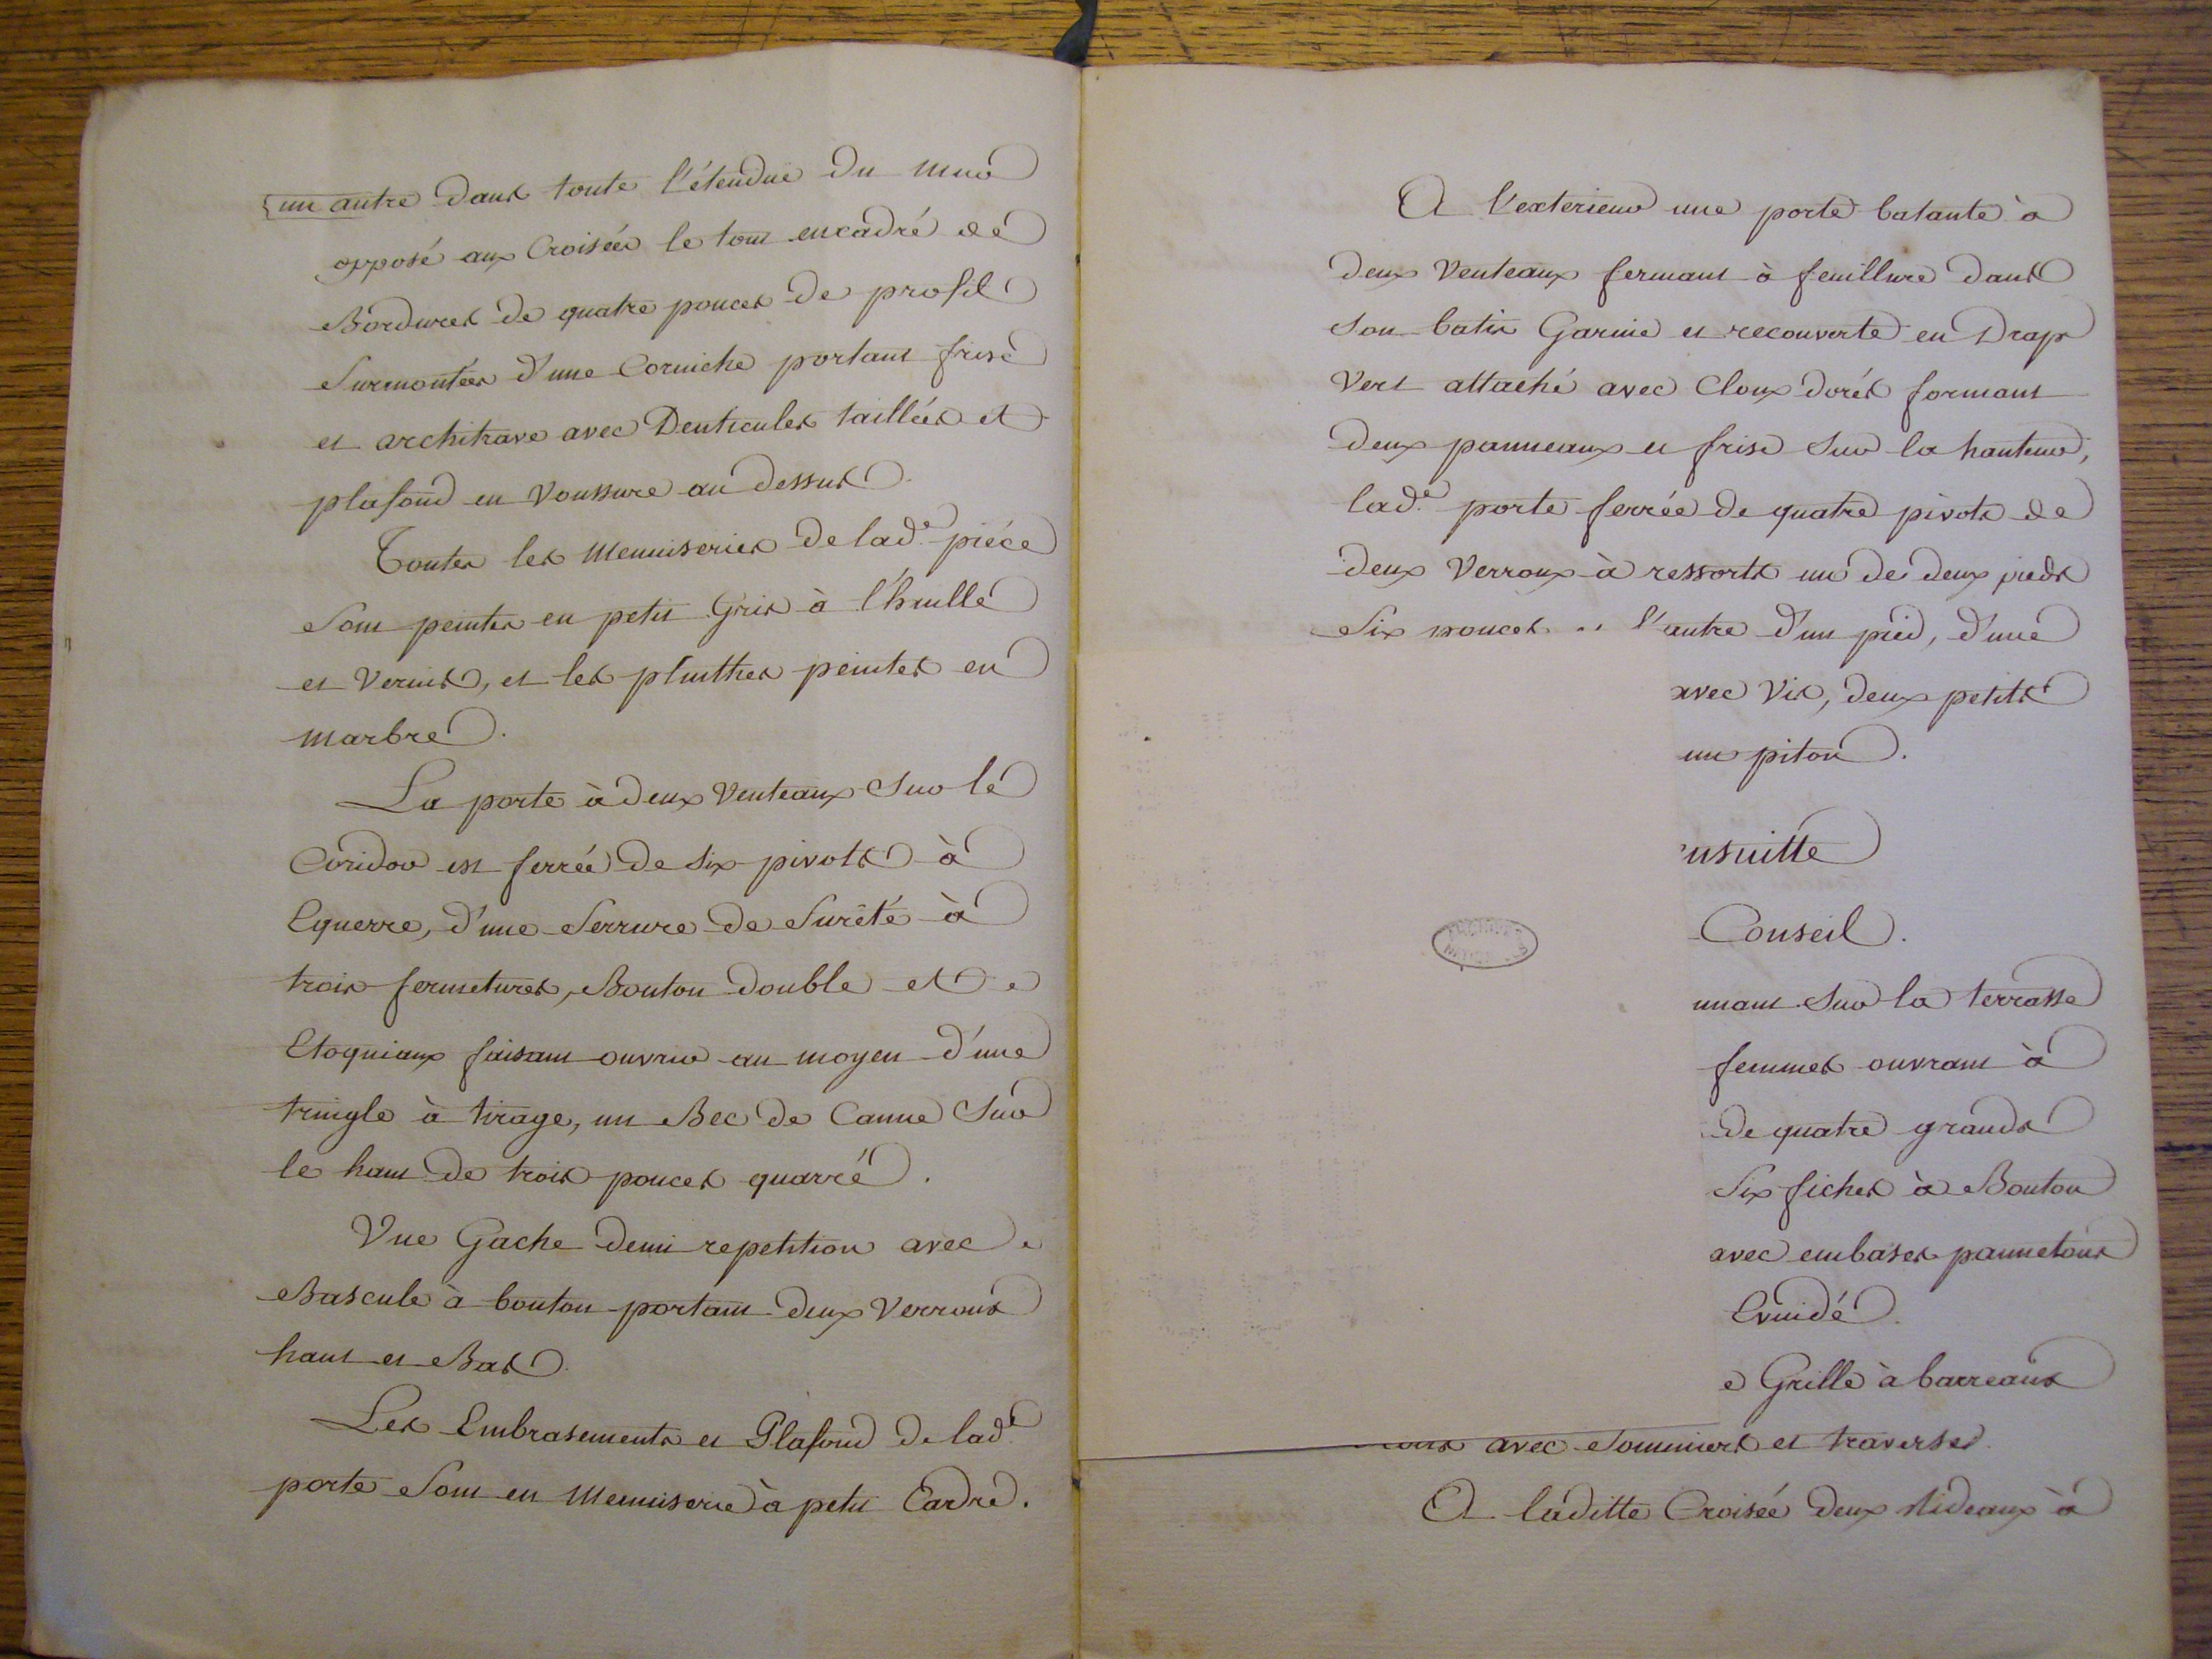 un autre dans toute l'étendue du mur
opposé aux Croisées le tout encadré de
Bordures de quatre pouces de profil
Surmontées d'une Corniche portant frise
et architrave avec Denticules taillées et
plafond en Voussure au dessus.
Toutes les Menuiseries de lad.e piéce
Sont peintes en petit Gris à l'huille
et Vernis, et les plinthes peintes en
marbre.
La porte à deux Venteaux Sur le
Coridor est ferrée de Six pivots à
Equerre, d'une Serrure de Sureté à
trois fermetures, Bouton double et
Etoquiaux faisant ouvrir au moyen d'une
tringle à tirage, un Bec de Canne Sur
le haut de trois pouces quarré.
Une Gache demi repetition avec
Bascule à bouton portant deux Verroux
haut et Bas.
Les Embrasements et Plafond de lad.e
porte Sont en Menuiserie à petit Cadre.
A l'exterieur une porte batante à
deux Venteaux fermant à feuillure dans
Son batis Garnie et recouverte en Drap
Vert attaché avec Cloux dorés formant
deux panneaux et frise Sur la hauteur,
lad.e porte ferrée de quatre pivots de
deux Verroux à ressorts un de deux pieds
Six pouces l'autre d'un pied, d'une
avec Vis, deux petits
un piton.
nsuitte
Conseil.
nnant Sur la terrasse
femmes ouvrant à
de quatre grands
Six fiches à Bouton
avec embases pannetons
Evuidé.
e Grille à barreaux
avec Sommiers et traverses.
A laditte Croisée deux Rideaux à